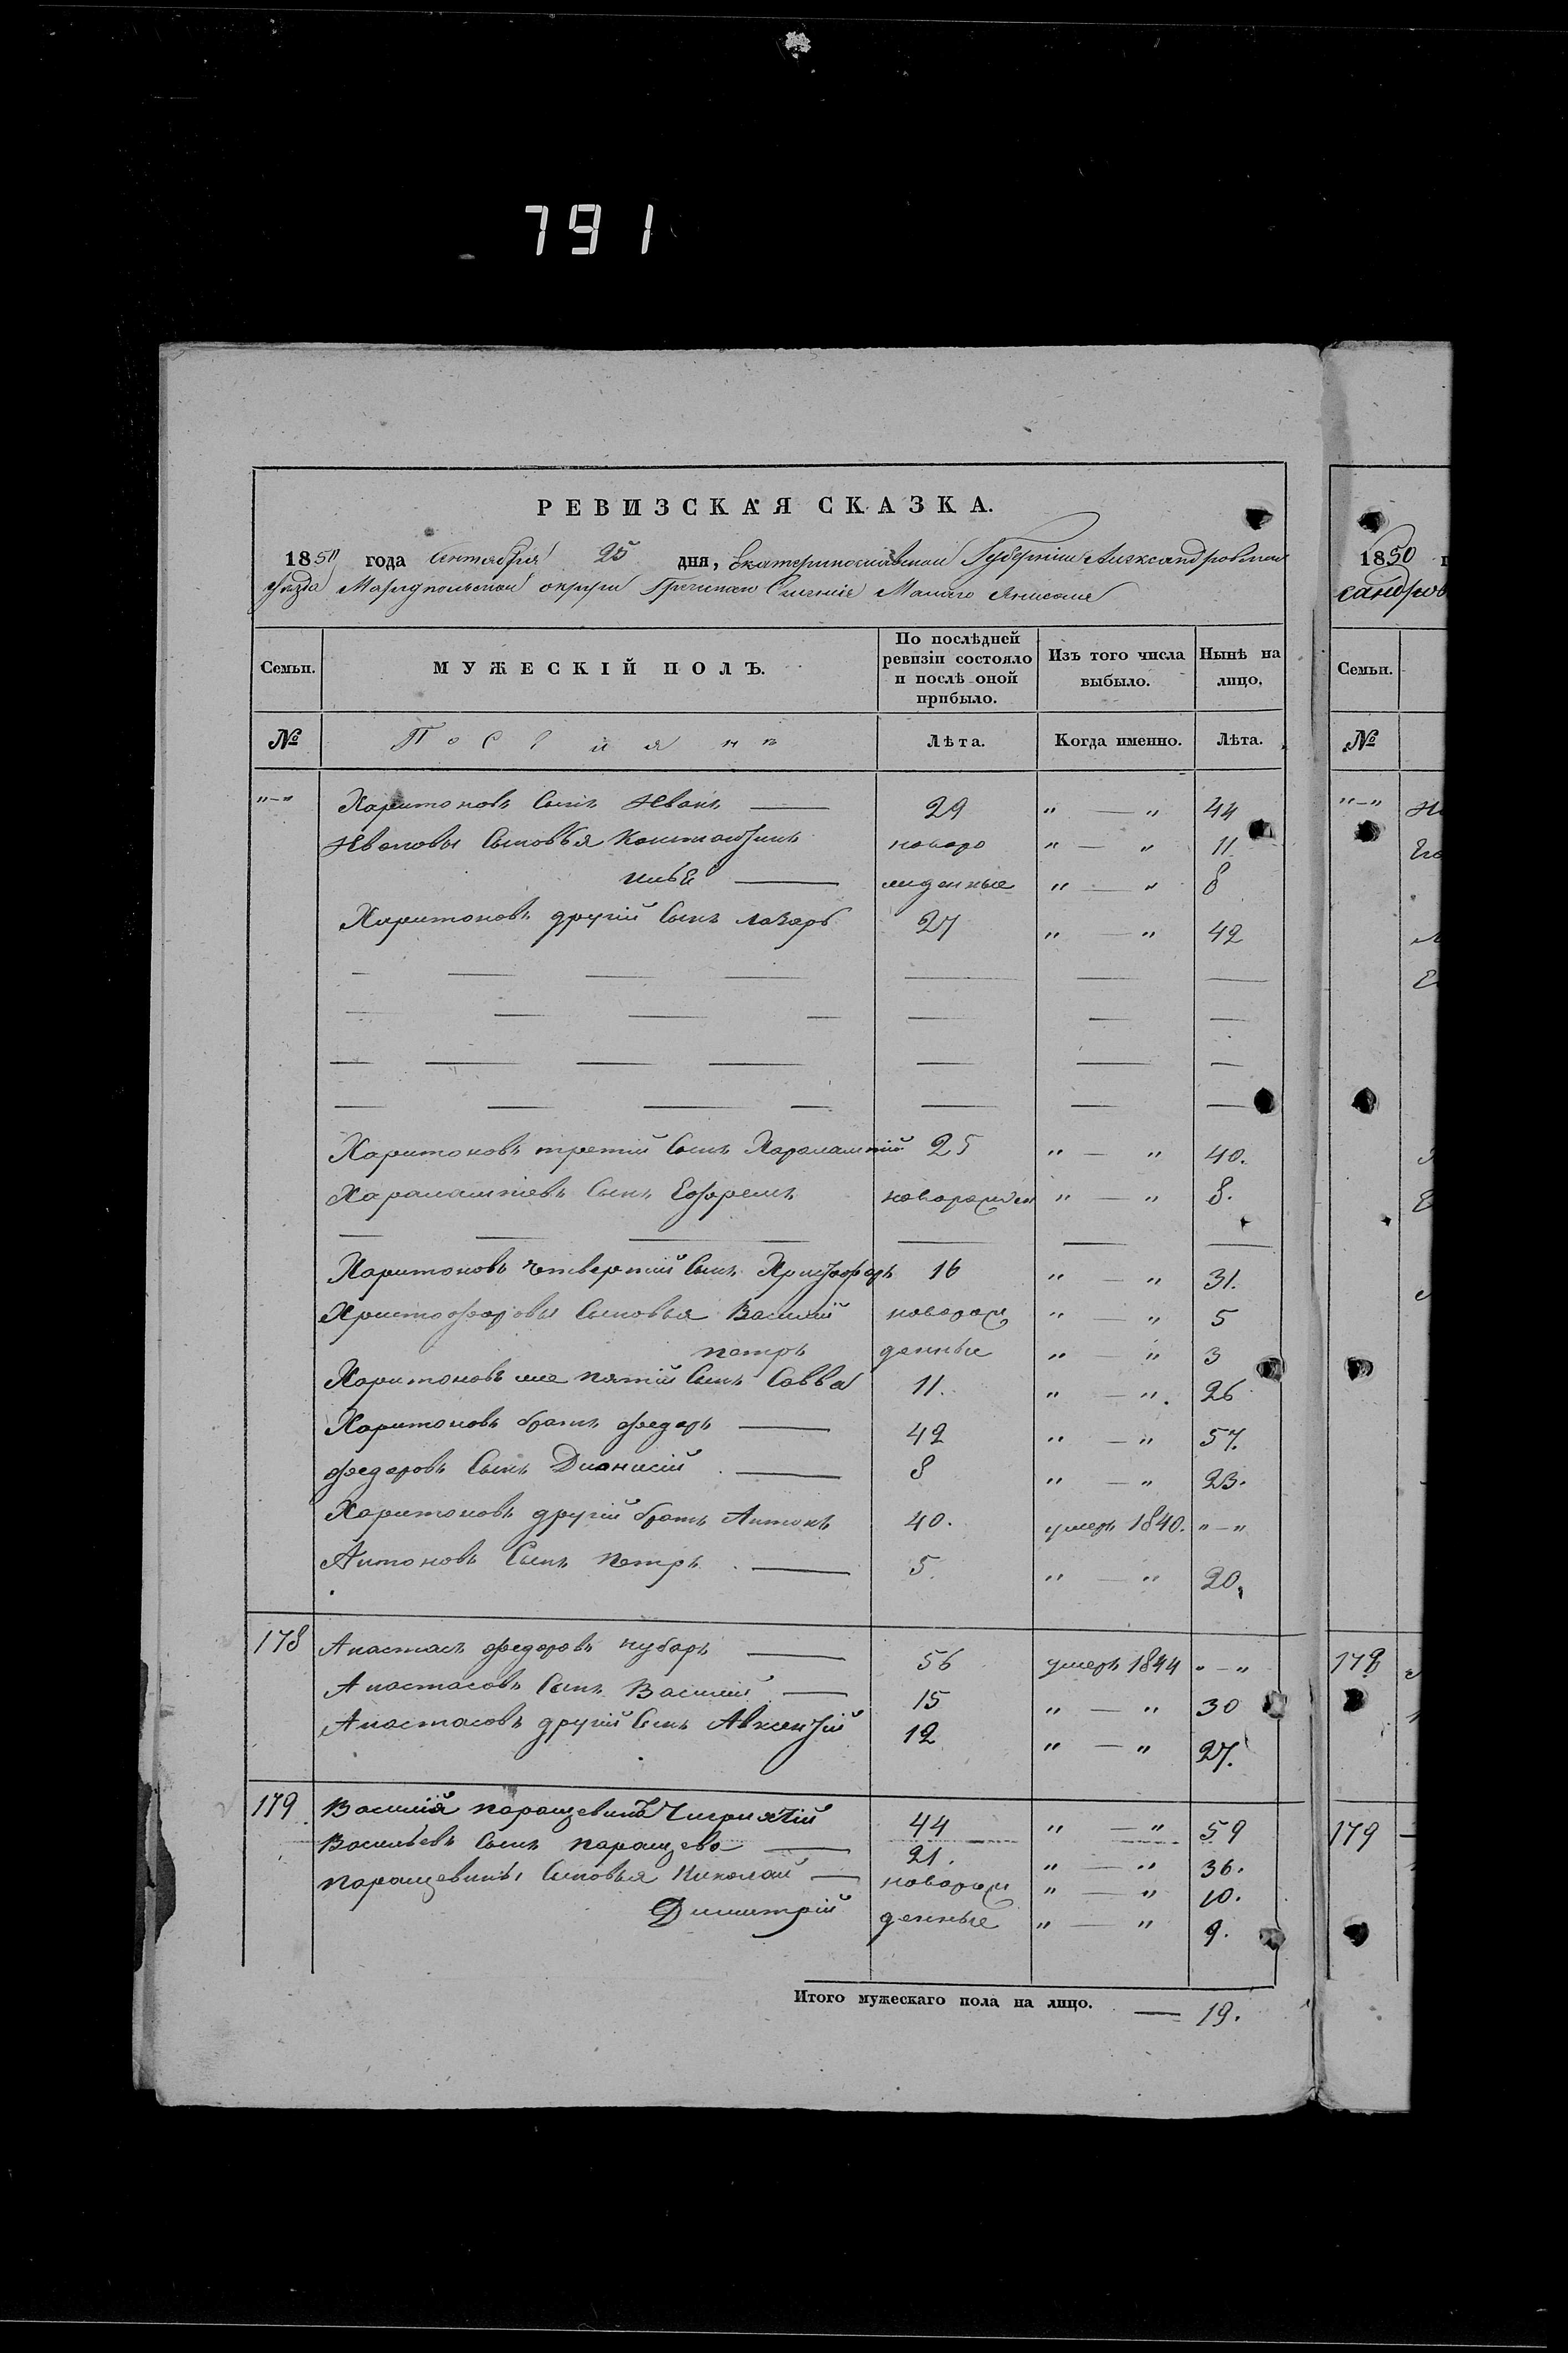 791
РЕВИЗСКАЯ СКАЗКА.
1850 года Сентября 25 дня, Екатеринославской Губерніи Александровскаго
уѣзда Маріупольской округи Греческаго Селенія Малаго Янисоля
Семьи. МУЖЕСКІЙ ПОЛЪ. По послѣдней ревизіи состояло и послѣ оной прибыло. Изъ того числа выбыло. Нынѣ на лицо.
№ Поселянъ Лѣта. Когда именно. Лѣта.
"-" Харитоновъ Сынъ Иванъ — 29 " — " 44
Ивановы Сыновья Константинъ новоро " — " 11.
Илья — жденные " — " 8
Харитоновъ другій Сынъ Лазарь 27 " — " 42
Харитоновъ третій Сынъ Харалампій 25 " — " 40.
Харалампіевъ Сынъ Ефремъ новорожден " — " 8.
Харитоновъ четвертий Сынъ Христофоръ 16 " — " 31.
Христофоровы Сыновья Василій новорож " — " 5
Петръ денные " — " 3
Харитоновъ же пятій Сынъ Савва 11. " — " 26
Харитоновъ братъ Федоръ — 42 " — " 57.
Федоровъ Сынъ Дионисій — 8 " — " 23.
Харитоновъ другій братъ Антонъ 40. умеръ 1840. "-"
Антоновъ Сынъ Петръ — 5. " — " 20.
178 Анастасъ Федоровъ — 56 умеръ 1844 "-"
Анастасовъ Сынъ Василий — 15 " — " 30
Анастасовъ другій Сынъ Авксентій 12 " — " 27.
179 Василій 44 " — " 59
Васильевъ Сынъ Паращева — 21. " — " 36.
Паращевины Сыновья Николай — новорож " — " 10.
Димитрій денные " — " 9.
Итого мужескаго пола на лицо. — 19.
1850
сандров
Семьи.
№
"-"
178
179